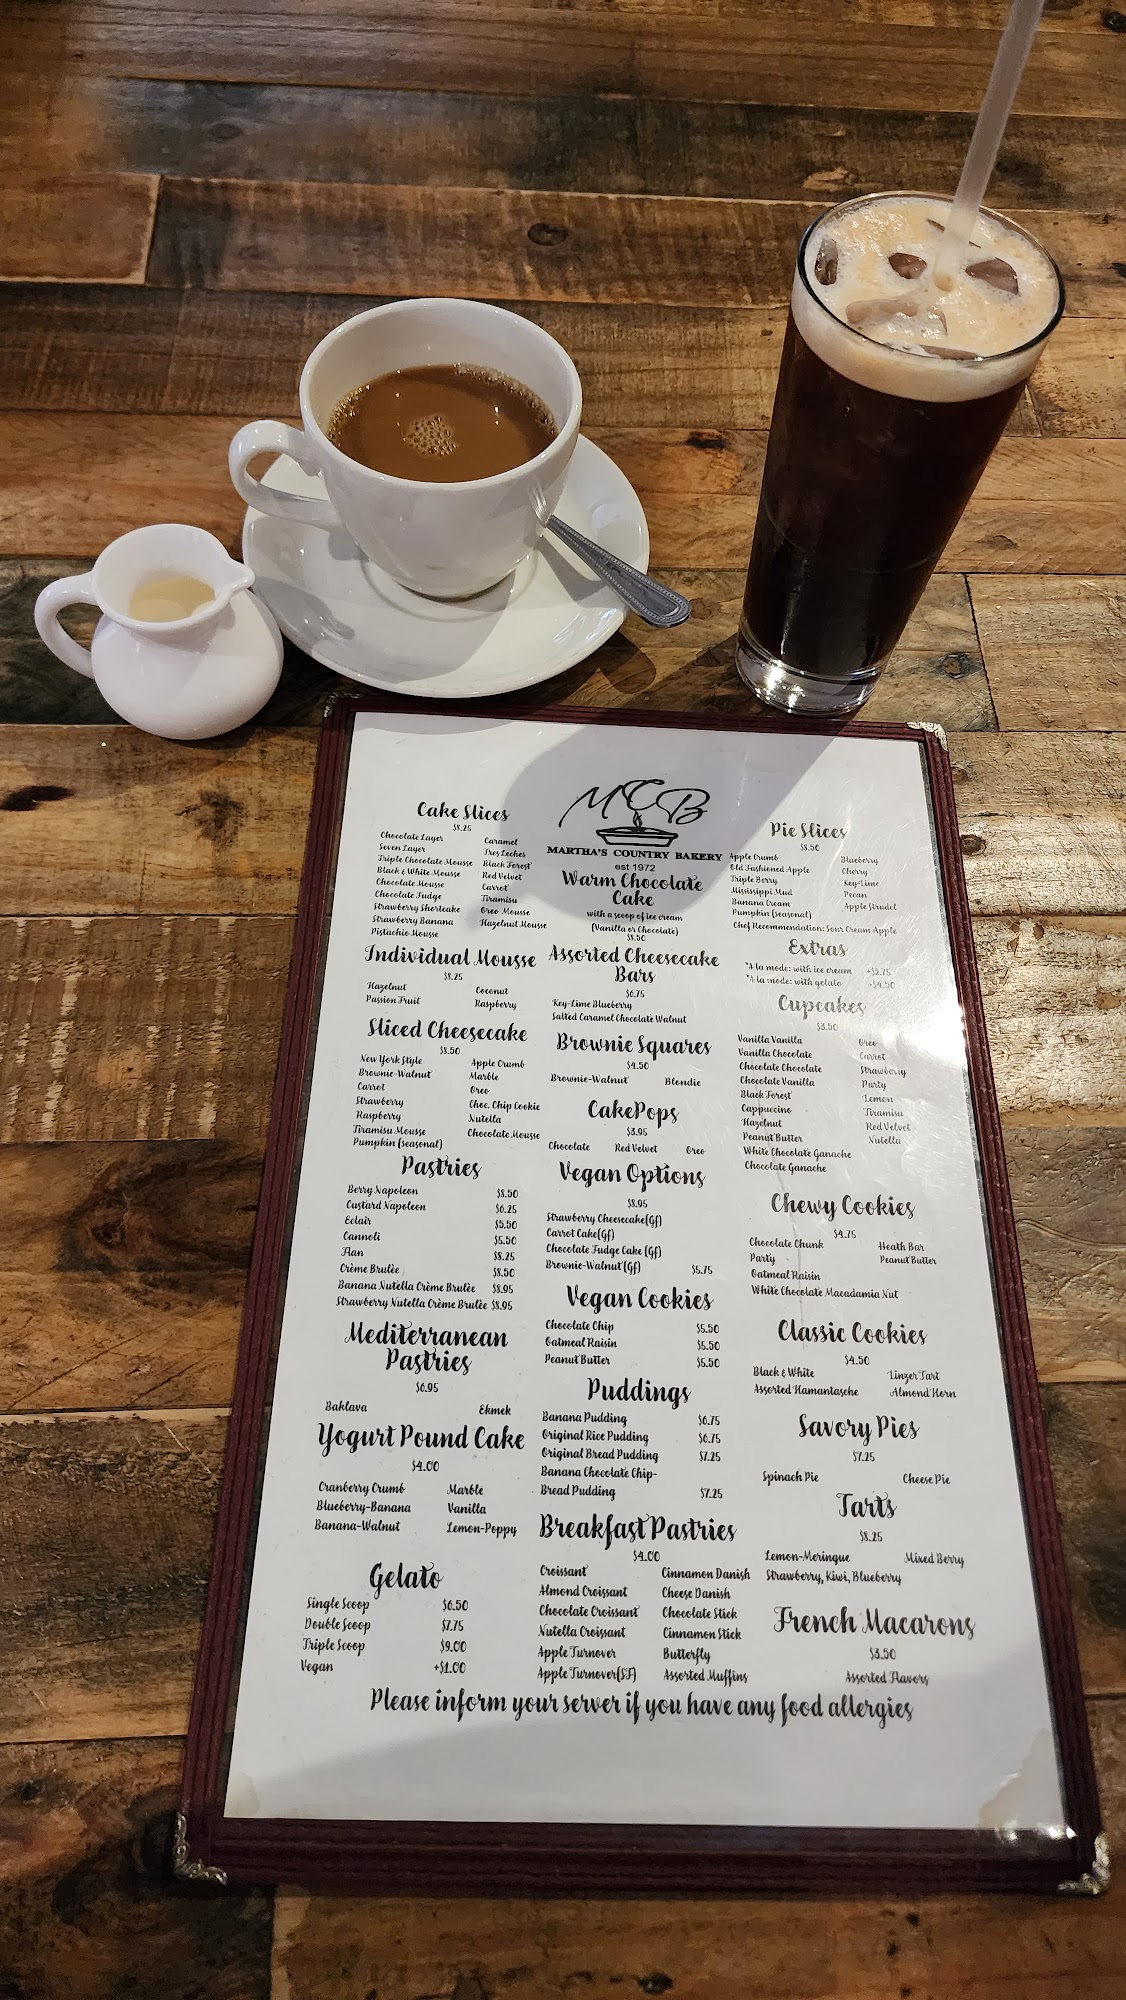 MCB
MARTHA'S COUNTRY BAKERY
est 1972
Cake Slices
$8.25
Chocolate Layer Caramel
Seven Layer Tres Leches
Triple Chocolate Mousse Black Forest
Black & White Mousse Red Velvet
Chocolate Mousse Carrot
Chocolate Fudge Tiramisu
Strawberry Shortcake Oreo Mousse
Strawberry Banana Hazelnut Mousse
Pistachio Mousse
Individual Mousse
$8.25
Hazelnut Coconut
Passion Fruit Raspberry
Sliced Cheesecake
$8.50
New York Style Apple Crumb
Brownie-Walnut Marble
Carrot Oreo
Strawberry Choc. Chip Cookie
Raspberry Nutella
Tiramisu Mousse Chocolate Mousse
Pumpkin (seasonal)
Pastries
Berry Napoleon $8.50
Custard Napoleon $6.25
Eclair $5.50
Cannoli $5.50
Flan $8.25
Crème Brulèe $8.50
Banana Nutella Crème Brulèe $8.95
Strawberry Nutella Crème Brulèe $8.95
Mediterranean
Pastries
$6.95
Baklava Ekmek
Yogurt Pound Cake
$4.00
Cranberry Crumb Marble
Blueberry-Banana Vanilla
Banana-Walnut Lemon-Poppy
Gelato
Single Scoop $6.50
Double Scoop $7.75
Triple Scoop $9.00
Vegan +$1.00
Warm Chocolate
Cake
with a scoop of ice cream
(Vanilla or Chocolate)
$8.50
Assorted Cheesecake
Bars
$6.75
Key-Lime Blueberry
Salted Caramel Chocolate Walnut
Brownie Squares
$4.50
Brownie-Walnut Blondie
CakePops
$3.95
Chocolate Red Velvet Oreo
Vegan Options
$8.95
Strawberry Cheesecake(Gf)
Carrot Cake(Gf)
Chocolate Fudge Cake (Gf)
Brownie-Walnut(Gf) $5.75
Vegan Cookies
Chocolate Chip $5.50
Oatmeal Raisin $5.50
Peanut Butter $5.50
Puddings
Banana Pudding $6.75
Original Rice Pudding $6.75
Original Bread Pudding $7.25
Banana Chocolate Chip-
Bread Pudding $7.25
Breakfast Pastries
$4.00
Croissant Cinnamon Danish
Almond Croissant Cheese Danish
Chocolate Croissant Chocolate Stick
Nutella Croissant Cinnamon Stick
Apple Turnover Butterfly
Apple Turnover(SF) Assorted Muffins
Pie Slices
$8.50
Apple Crumb Blueberry
Old Fashioned Apple Cherry
Triple Berry Key-Lime
Mississippi Mud Pecan
Banana Cream Apple Strudel
Pumpkin (seasonal)
Chef Recommendation: Sour Cream Apple
Extras
*A la mode: with ice cream +$2.75
*A la mode: with gelato +$4.50
Cupcakes
$3.50
Vanilla Vanilla Oreo
Vanilla Chocolate Carrot
Chocolate Chocolate Strawberry
Chocolate Vanilla Party
Black Forest Lemon
Cappuccino Tiramisu
Hazelnut Red Velvet
Peanut Butter Nutella
White Chocolate Ganache
Chocolate Ganache
Chewy Cookies
$4.75
Chocolate Chunk Heath Bar
Party Peanut Butter
Oatmeal Raisin
White Chocolate Macadamia Nut
Classic Cookies
$4.50
Black & White Linzer Tart
Assorted Hamantasche Almond Horn
Savory Pies
$7.25
Spinach Pie Cheese Pie
Tarts
$8.25
Lemon-Meringue Mixed Berry
Strawberry, Kiwi, Blueberry
French Macarons
$3.50
Assorted Flavors
Please inform your server if you have any food allergies